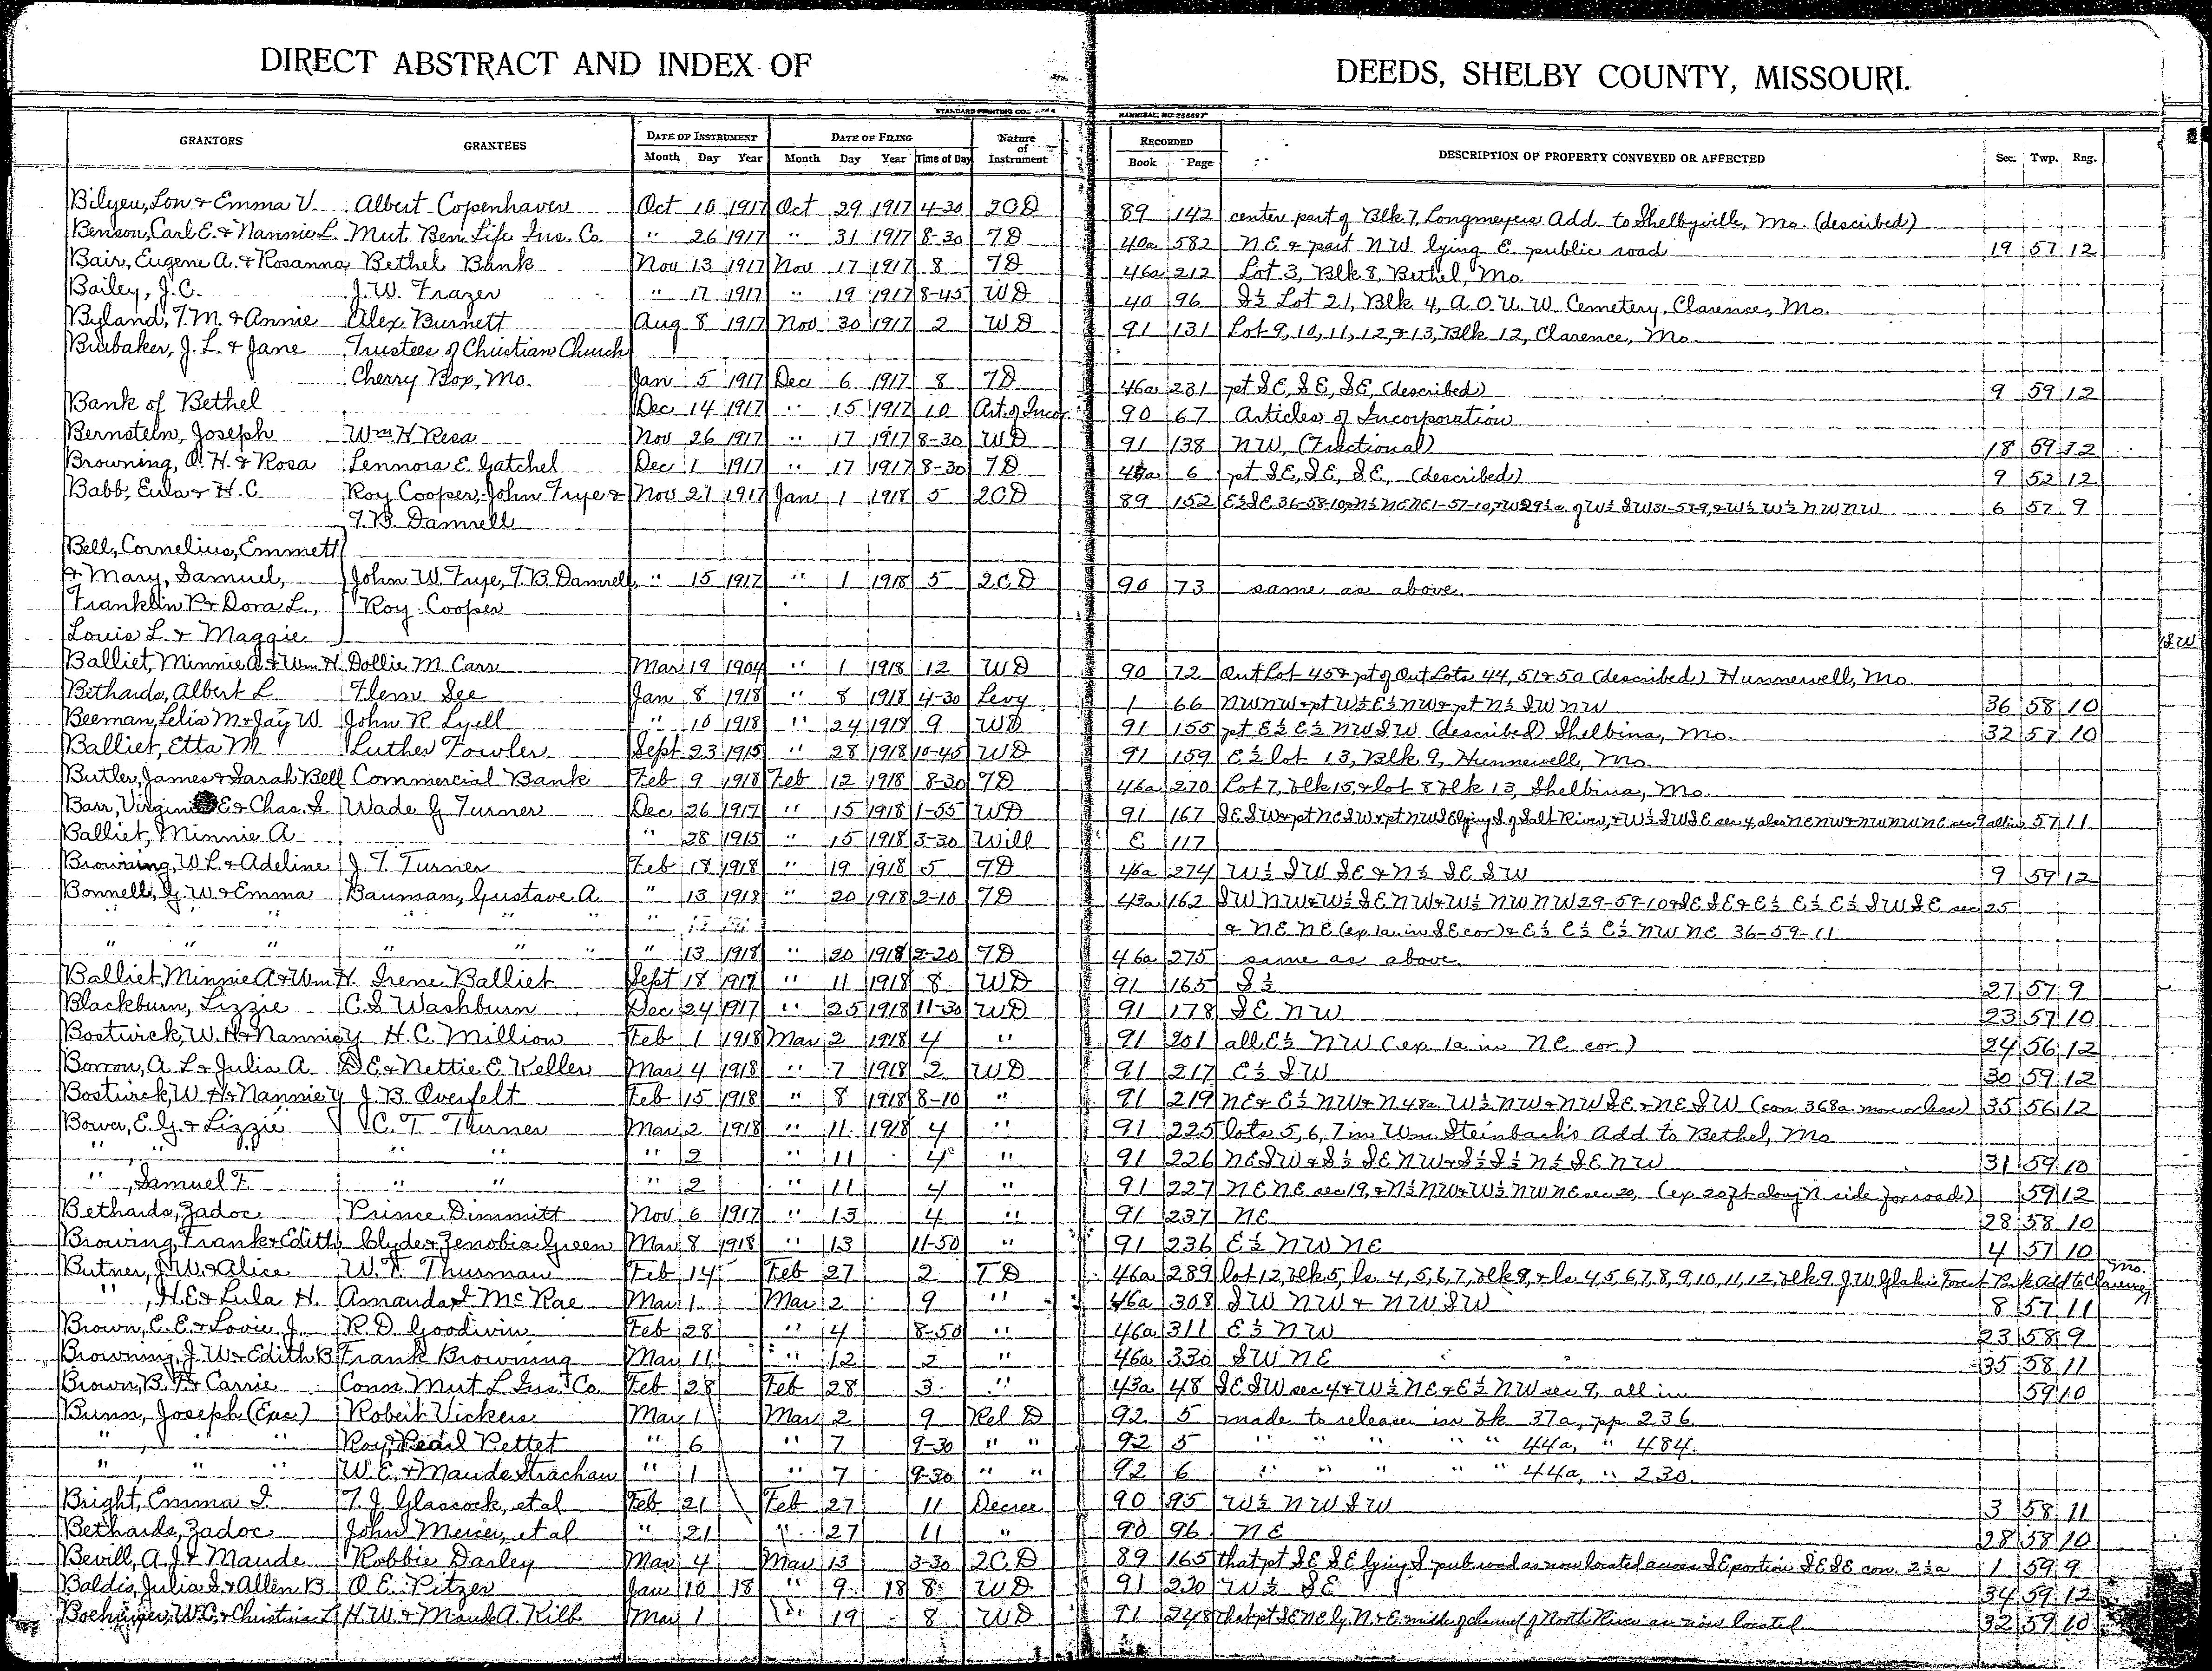 DIRECT ABSTRACT AND INDEX OF DEEDS, SHELBY COUNTY, MISSOURI.
STANDARD PRINTING CO.
GRANTORS GRANTEES DATE OF INSTRUMENT DATE OF FILING Nature of Instrument RECORDED DESCRIPTION OF PROPERTY CONVEYED OR AFFECTED Sec. Twp. Rng.
Month Day Year Month Day Year Time of Day Book Page
Bilyeu, Lon & Emma V. Albert Copenhaver Oct 10 1917 Oct 29 1917 4-30 2CD 89 142 center part of Blk. 7, Longmeyers Add. to Shelbyville, Mo. (described)
Benson, Carl E. & Nannie L. Mut. Ben. Life Ins. Co. " 26 1917 " 31 1917 8-30 TD 40a 582 NE & part NW lying E. public road 19 57 12
Bair, Eugene A. & Rosanna Bethel Bank Nov 13 1917 Nov 17 1917 8 TD 46a 212 Lot 3, Blk 8, Bethel, Mo.
Bailey, J.C. J.W. Frazer " 17 1917 " 19 1917 8-45 WD 40 96 S½ Lot 21, Blk 4, A.O.U.W. Cemetery, Clarence, Mo.
Byland, T.M. & Annie Alex Burnett Aug 8 1917 Nov 30 1917 2 WD 91 131 Lot 9, 10, 11, 12, & 13, Blk 12, Clarence, Mo.
Brubaker, J. L. & Jane Trustees of Christian Church
Cherry Box, Mo. Jan 5 1917 Dec 6 1917 8 TD 46a 231 pt SE, SE, SE, (described) 9 59 12
Bank of Bethel Dec 14 1917 " 15 1917 10 Art. of Incor. 90 67 Articles of Incorporation
Bernstein, Joseph Wm H Resa Nov 26 1917 " 17 1917 8-30 WD 91 138 NW, (Fractional) 18 59 12
Browning, O. H. & Rosa Lennora E. Gatchel Dec 1 1917 " 17 1917 8-30 TD 6 pt SE, SE, SE, (described) 9 52 12
Babb, Eula & H.C. Roy Cooper, John Frye & Nov 21 1917 Jan 1 1918 5 2CD 89 152 E½SE 36-58-10, & N½ NENE 1-57-10, & W 29½a. of W½ SW 31-58-9, & W½ W½ NWNW 6 57 9
T.B. Damrell
Bell, Cornelius, Emmett
& Mary, Samuel, John W. Frye, T.B. Damrell, " 15 1917 " 1 1918 5 2CD 90 73 same as above.
Franklin P. & Dora L., Roy Cooper
Louis L. & Maggie
Balliet, Minnie A. & Wm. H. Dollie M. Carr Mar 19 1904 " 1 1918 12 WD 90 72 Out Lot 45 & pt of Out Lots 44, 51 & 50 (described) Hunnewell, Mo.
Bethards, Albert L. Flem See Jan 8 1918 " 8 1918 4-30 Levy 1 66 NWNW & pt W½ E½ NW & pt N½ SW NW 36 58 10
Beeman, Lelia M. & Jay W. John R. Lyell " 10 1918 " 24 1918 9 WD 91 155 pt E½ E½ NWSW (described) Shelbina, Mo. 32 57 10
Balliet, Etta M. Luther Fowler Sept 23 1915 " 28 1918 10-45 WD 91 159 E½ lot 13, Blk. 9, Hunnewell, Mo.
Butler, James & Sarah Bell Commercial Bank Feb 9 1918 Feb 12 1918 8-30 TD 46a 270 Lot 7, blk 15, & lot 8 blk 13, Shelbina, Mo.
Barr, Virginia E & Chas. S. Wade G Turner Dec 26 1917 " 15 1918 1-55 WD 91 167 SESW & pt NESW & pt NWSE lying S of Salt River, & W½ SWSE sec 4, also NENW & NWNWNE sec 9 all in 57 11
Balliet, Minnie A. " 28 1915 " 15 1918 3-30 Will E 117
Browning, W. L. & Adeline J. T. Turner Feb 18 1918 " 19 1918 5 TD 46a 274 W½ SW SE & N½ SE SW 9 59 12
Bonnell, G. W. & Emma Bauman, Gustave A. " 13 1918 " 20 1918 2-10 TD 43a 162 SW NW & W½ SE NW & W½ NW NW 29-59-10 & SE SE & E½ E½ E½ SW SE sec 25
" " " " " " & NE NE (exp 1a. in SE cor) & E½ E½ E½ NW NE 36-59-11
" " " " " " " 13 1918 " 20 1918 2-20 TD 46a 275 same as above.
Balliet, Minnie A & Wm H. Irene Balliet Sept 18 1917 " 11 1918 8 WD 91 165 S½ 27 57 9
Blackburn, Lizzie C.S. Washburn Dec 24 1917 " 25 1918 11-30 WD 91 178 SE NW 23 57 10
Bostwick, W. H. & Nannie Y H. C. Million Feb 1 1918 Mar 2 1918 4 " 91 201 all E½ NW (exp 1a in NE cor) 24 56 12
Borron, A. L. & Julia A. D E. & Nettie E Keller Mar 4 1918 " 7 1918 2 WD 91 217 E½ SW 30 59 12
Bostwick, W. H. & Nannie Y J. B. Overfelt Feb 15 1918 " 8 1918 8-10 " 91 219 NE & E½ NW & N 48a. W½ NW & NW SE & NE SW (con 368a. more or less) 35 56 12
Bower, E. G. & Lizzie C. T. Turner Mar 2 1918 " 11 1918 4 " 91 225 lots 5, 6, 7 in Wm. Steinbach's Add. to Bethel, Mo
" " " " " 2 " 11 4 " 91 226 NESW & S½ SE NW & S½ S½ N½ SE NW 31 59 10
" , Samuel F. " " " 2 " 11 4 " 91 227 NE NE sec 19, & N½ NW & W½ NW NE sec 20, (exp 20 ft along N. side for road) 59 12
Bethards, Zadoc Prince Dimmitt Nov 6 1917 " 13 4 " 91 237 NE 28 58 10
Browing, Frank & Edith Clyde & Zenobia Green Mar 8 1918 " 13 11-50 " 91 236 E½ NW NE 4 57 10
Butner, J. W. & Alice W. T. Thurman Feb 14 Feb 27 2 TD 46a 289 lot 12, blk 5, ls. 4, 5, 6, 7, blk 8, & ls. 4, 5, 6, 7, 8, 9, 10, 11, 12, blk 9 J.W. Forest Park Add to Clarence, Mo.
" , H.E. & Lula H. Amanda McRae Mar 1 Mar 2 9 " 46a 308 SW NW & NW SW 8 57 11
Brown, C. E. & Lovie J. R. D. Goodwin Feb 28 " 4 8-50 " 46a 311 E½ NW 23 58 9
Browning, J. W. & Edith B Frank Browning Mar 11 " 12 2 " 46a 330 SW NE 35 58 11
Brown, B. F. & Carrie Conn. Mut L Ins. Co. Feb 28 Feb 28 3 " 43a 48 SE SW sec 4 & W½ NE & E½ NW sec 9, all in 59 10
Bunn, Joseph (Exc) Robert Vickers Mar 1 Mar 2 9 Rel D 92 5 made to release in bk 37a, pp 236.
" " " Roy & Pearl Pettet " 6 " 7 9-30 " " 92 5 " " " " " 44a, " 484.
" " " W. E. & Maude Strachan " 1 " 7 9-30 " " 92 6 " " " " " 44a, " 230.
Bright, Emma I. T. J. Glascock, et al Feb 21 Feb 27 11 Decree 90 95 W½ NW SW 3 58 11
Bethards, Zadoc John Mercer, et al " 21 " 27 11 " 90 96 NE 28 58 10
Bevill, A. J. & Maude Robbie Darley Mar 4 Mar 13 3-30 2CD 89 165 that pt SE SE lying S. pub. road as now located across SE portion SE SE con. 2½a 1 59 9
Baldis, Julia S. & Allen B O. E. Pitzer Jan 10 18 " 9 18 8 WD 91 220 W½ SE 34 59 12
W.C. & Christina L H. W. & Maude A. Kilb Mar 1 " 19 8 WD 91 248 that pt SE NE ly. N. & E. middle of channel of North River as now located 32 59 10
SW